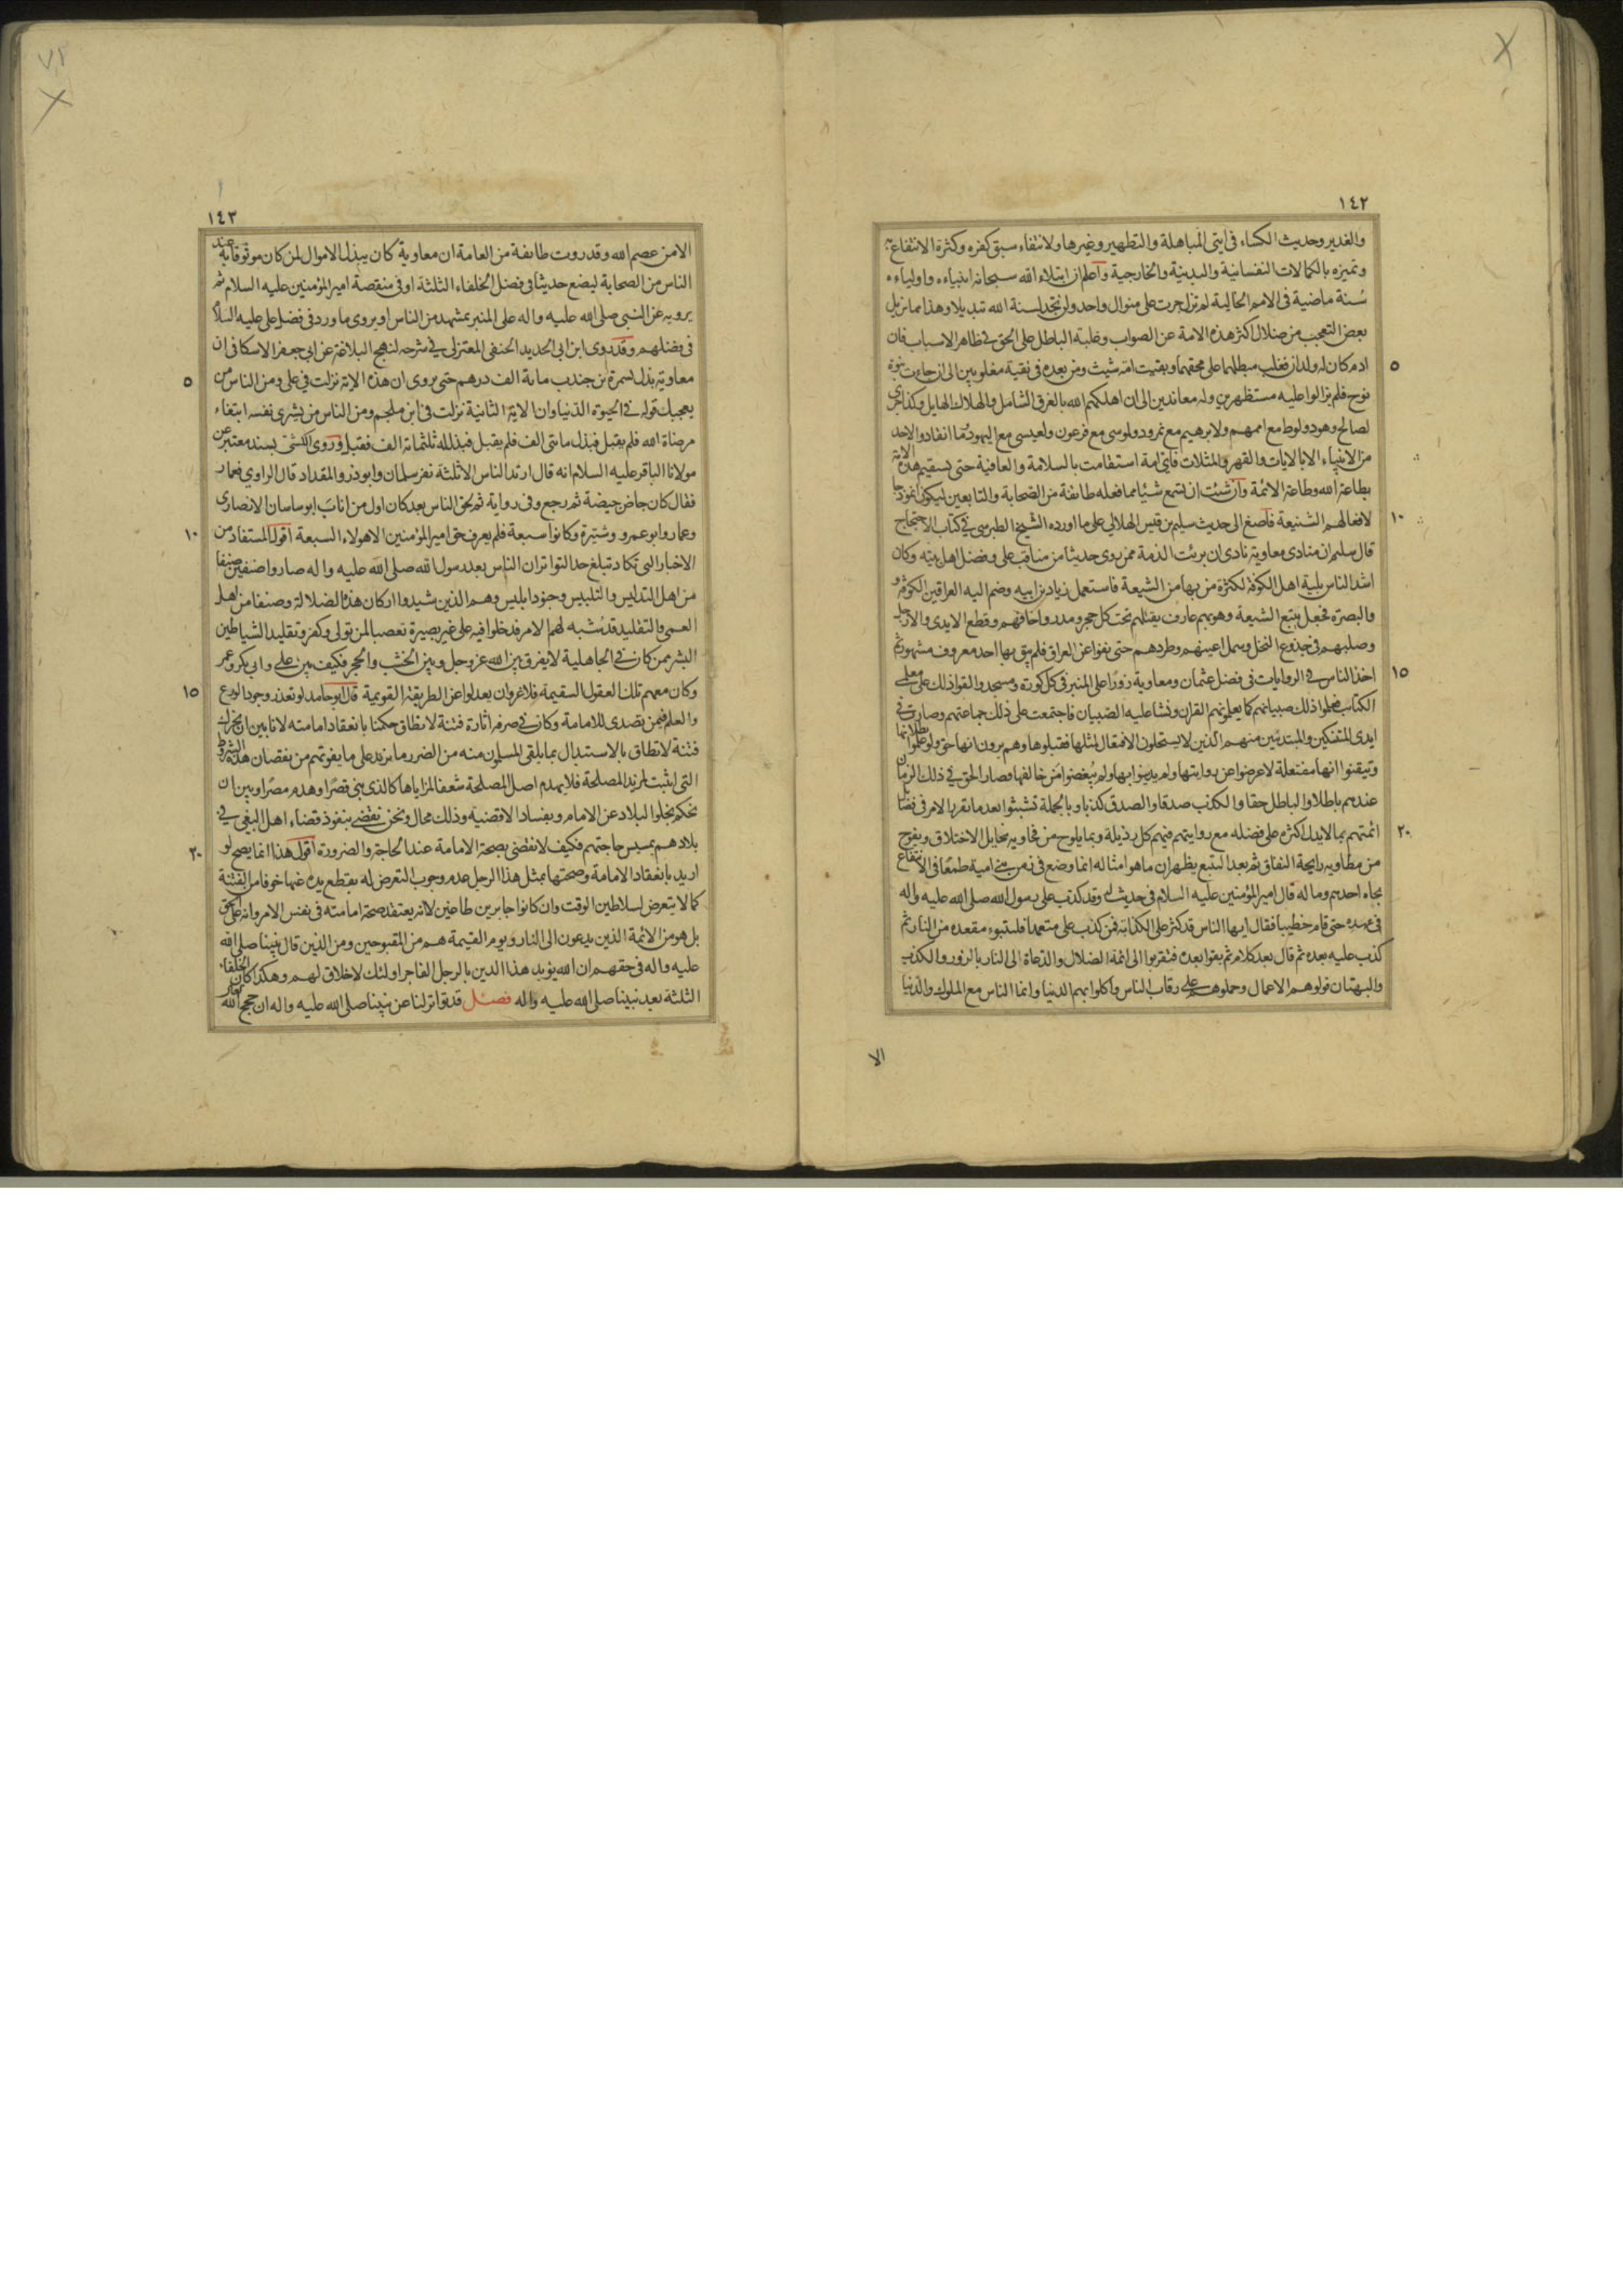 ١٤٢
والغدير وحديث الكساء في ايتي المباهلة والتطهير وغيرها ولانتفاء سبق كفره وكثرة الانتفاع به
وتميزه بالكمالات النفسانية والبدنية والخارجية واعلم ان ابتلاء الله سبحانه انبياءه واولياءه
سنة ماضية في الامم الخالية لم تزل جرت على منوال واحد ولن تجد لسنة الله تبديلا وهذا مما يزيل
بعض التعجب من ضلال اكثر هذه الامة عن الصواب وغلبة الباطل على الحق في ظاهر الاسباب فان
٥
ادم كان له ولدان فغلب مبطلهما على محقهما وبقيت امة شيث ومن بعده في تقية مغلوبين الى ان جاءت نبوة
نوح فلم يزالوا عليه مستظهرين وله معاندين الى ان اهلكهم الله بالغرق الشامل والهلاك الهايل وكذا جرى
لصالح وهود ولوط مع اممهم ولابرهيم مع نمرود ولموسى مع فرعون ولعيسى مع اليهود فما انقادوا لاحد
من الانبياء الا بالايات والقهر والمثلات فاي امة استقامت بالسلامة والعافية حتى يستقيم هذه الامة
بطاعة الله وطاعة الائمة وان شئت ان تسمع شيئا مما فعله طائفة من الصحابة والتابعين ليكون انموذجا
١٠
لافعالهم الشنيعة فاصغ الى حديث سليم بن قيس الهلالي على ما اورده الشيخ الطبرسي في كتاب الاحتجاج
قال سليم ان منادى معاوية نادى ان برئت الذمة ممن روى حديثا من مناقب علي وفضل اهل بيته وكان
اشد الناس بلية اهل الكوفة لكثرة من بها من الشيعة فاستعمل زياد بن ابيه وضم اليه العراقين الكوفة و
والبصرة فجعل يتبع الشيعة وهو بهم عارف يقتلهم تحت كل حجر ومدر واخافهم وقطع الايدى والارجل
وصلبهم في جذوع النخل وسمل اعينهم وطردهم حتى نفوا عن العراق فلم يبق بها احد معروف مشهور ثم
١٥
اخذ الناس في الروايات في فضل عثمان ومعاوية زورا على المنبر في كل كورة ومسجد والقوا ذلك على معلمي
الكتاب فعلموا ذلك صبيانهم كما يعلمونهم القران ونشا عليه الصبيان فاجتمعت على ذلك جماعتهم وصارت في
ايدى المتنسكين والمتدينين منهم الذين لا يستحلون الافتعال لمثلها فقبلوها وهم يرون انها حق ولو علموا بطلانها
وتيقنوا انها مفتعلة لاعرضوا عن روايتها ولم يدينوا بها ولم يبغضوا من خالفها فصار الحق في ذلك الزمان
عندهم باطلا والباطل حقا والكذب صدقا والصدق كذبا وبالجملة تشبثوا بعد ما تقرر الامر في فضائل
٢٠
ائمتهم بما لا يدل اكثره على فضله مع روايتهم فيهم كل رذيلة وبما يلوح من فحاويه مخايل الاختلاق ويفوح
من مطاويه رايحة النفاق ثم بعد التتبع يظهر ان ما هو امثاله انما وضع في زمن بني امية طمعا في الانتفاع
بجاه احدهم وماله قال امير المؤمنين عليه السلام في حديث له وقد كذب على رسول الله صلى الله عليه واله
في عهده حتى قام خطيبا فقال ايها الناس قد كثر على الكذابة فمن كذب على متعمدا فليتبوء مقعده من النار ثم
كذب عليه بعده ثم قال بعد كلام ثم بقوا بعده فتقربوا الى ائمة الضلال والدعاة الى النار بالزور والكذب
والبهتان فولوهم الاعمال وحملوهم على رقاب الناس واكلوا بهم الدنيا وانما الناس مع الملوك والدنيا
الا
١٤٣
الا من عصم الله وقد روت طائفة من العامة ان معاوية كان يبذل الاموال لمن كان موثوقا به عند
الناس من الصحابة ليضع حديثا في فضل الخلفاء الثلثة او في منقصة امير المؤمنين عليه السلام ثم
يرويه عن النبي صلى الله عليه واله على المنبر بمشهد من الناس او يروى ما ورد في فضل علي عليه السلام
في فضلهم وقد روى ابن ابي الحديد الحنفي المعتزلي في شرحه لنهج البلاغة عن ابي جعفر الاسكافي ان
٥
معاوية بذل لسمرة بن جندب ماية الف درهم حتى يروى ان هذه الاية نزلت في علي ومن الناس من
يعجبك قوله في الحيوة الدنيا وان الاية الثانية نزلت في ابن ملجم ومن الناس من يشرى نفسه ابتغاء
مرضاة الله فلم يقبل فبذل مائتي الف فلم يقبل فبذل له ثلثمائة الف فقبل وروى الكشي بسند معتبر عن
مولانا الباقر عليه السلام انه قال ارتد الناس الا ثلثة نفر سلمان وابوذر والمقداد قال الراوي فعمار
فقال كان جاض جيضة ثم رجع وفي رواية ثم لحق الناس بعد كان اول من اناب ابو ساسان الانصارى
١٠
وعمار وابو عمرو وشتيرة وكانوا سبعة فلم يعرف حق امير المؤمنين الا هولاء السبعة اقول المستفاد من
الاخبار التي تكاد تبلغ حد التواتر ان الناس بعد رسول الله صلى الله عليه واله صاروا صنفين صنفا
من اهل التدليس والتلبيس وجنود ابليس وهم الذين شيدوا اركان هذه الضلالة وصنفا من اهل
العمى والتقليد قد شبه لهم الامر فدخلوا فيه على غير بصيرة تعصبا لمن تولى وكفر وتقليد الشياطين
البشر ممن كان في الجاهلية لا يفرق بين الله عز وجل وبين الخشب والحجر فكيف بين علي وابي بكر وعمر
١٥
وكان معهم تلك العقول السقيمة فلا غرو ان يعدلوا عن الطريقة القويمة قال ابو حامد لو تعذر وجود الورع
والعلم فيمن يتصدى للامامة وكان في صرفه اثارة فتنة لا تطاق حكمنا بانعقاد امامته لانا بين ان نحرك
فتنة لا تطاق بالاستبدال بما يلقى المسلمون منه من الضرر ما يزيد على ما يفوتهم من نقصان هذه الشروط
التي اثبتت لمزيد المصلحة فلا يهدم اصل المصلحة شعفا لمزاياها كالذى يبنى قصرا وهدم مصرا وبين ان
نحكم بخلو البلاد عن الامام وبفساد الاقضية وذلك محال ونحن نقضي بنفوذ قضاء اهل البغي في
٢٠
بلادهم بمسيس حاجتهم فكيف لا نقضى بصحة الامامة عند الحاجة والضرورة اقول هذا انما يصح لو
اريد بانعقاد الامامة وصحتها بمثل هذا الرجل عدم وجوب التعرض له بقطع يده عنها خوفا من الفتنة
كما لا يتعرض لسلاطين الوقت وان كانوا جابرين طاغين لانه يعتقد صحة امامته في نفس الامر وانه على الحق
بل هو من الائمة الذين يدعون الى النار ويوم القيمة هم من المقبوحين ومن الذين قال نبينا صلى الله
عليه واله في حقهم ان الله يؤيد هذا الدين بالرجل الفاجر اولئك لاخلاق لهم وهكذا كان الخلفاء
الثلثة بعد نبينا صلى الله عليه واله فصل قد تواتر لنا عن نبينا صلى الله عليه واله ان حجج الله تعالى